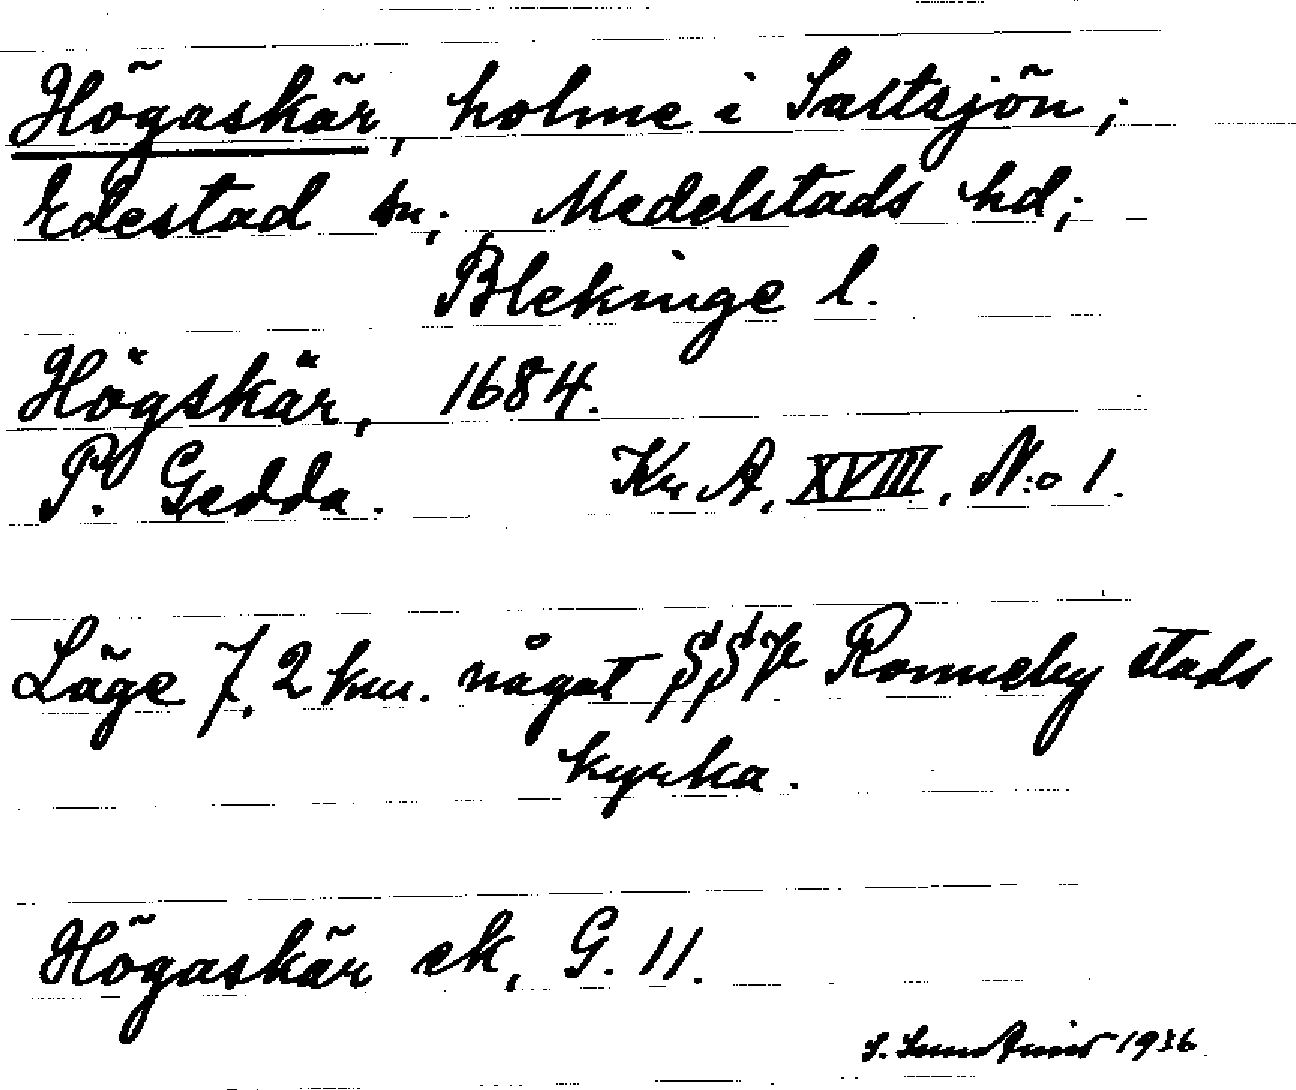 Högaskär, holme i Saltsjön;
Edestad sn; Medelstads hd;
Blekinge l.
Högskär, 1684.
P. Gedda. Kr A, XVIII, N:o 1.
Läge 7,2 km. något SSV Ronneby stads
kyrka.
Högaskär ek, G. 11.
S. 1936